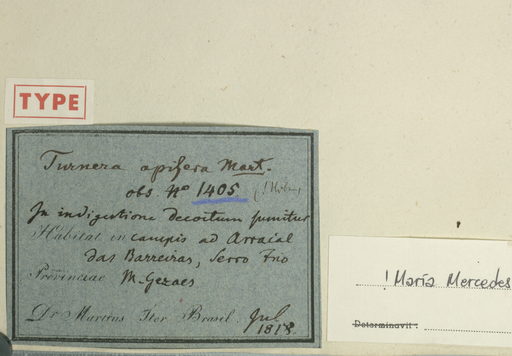 TYPE
Turnera apifera Mart.
obs. No 1405
In indigestione decoctum sumitur
Habitat in campis ad Arraial
das Barreiras, Serro Frio
Provinciae M. Geraes
Dr Martius Iter Brasil. Jul
1818
! María Mercedes
Determinavit: